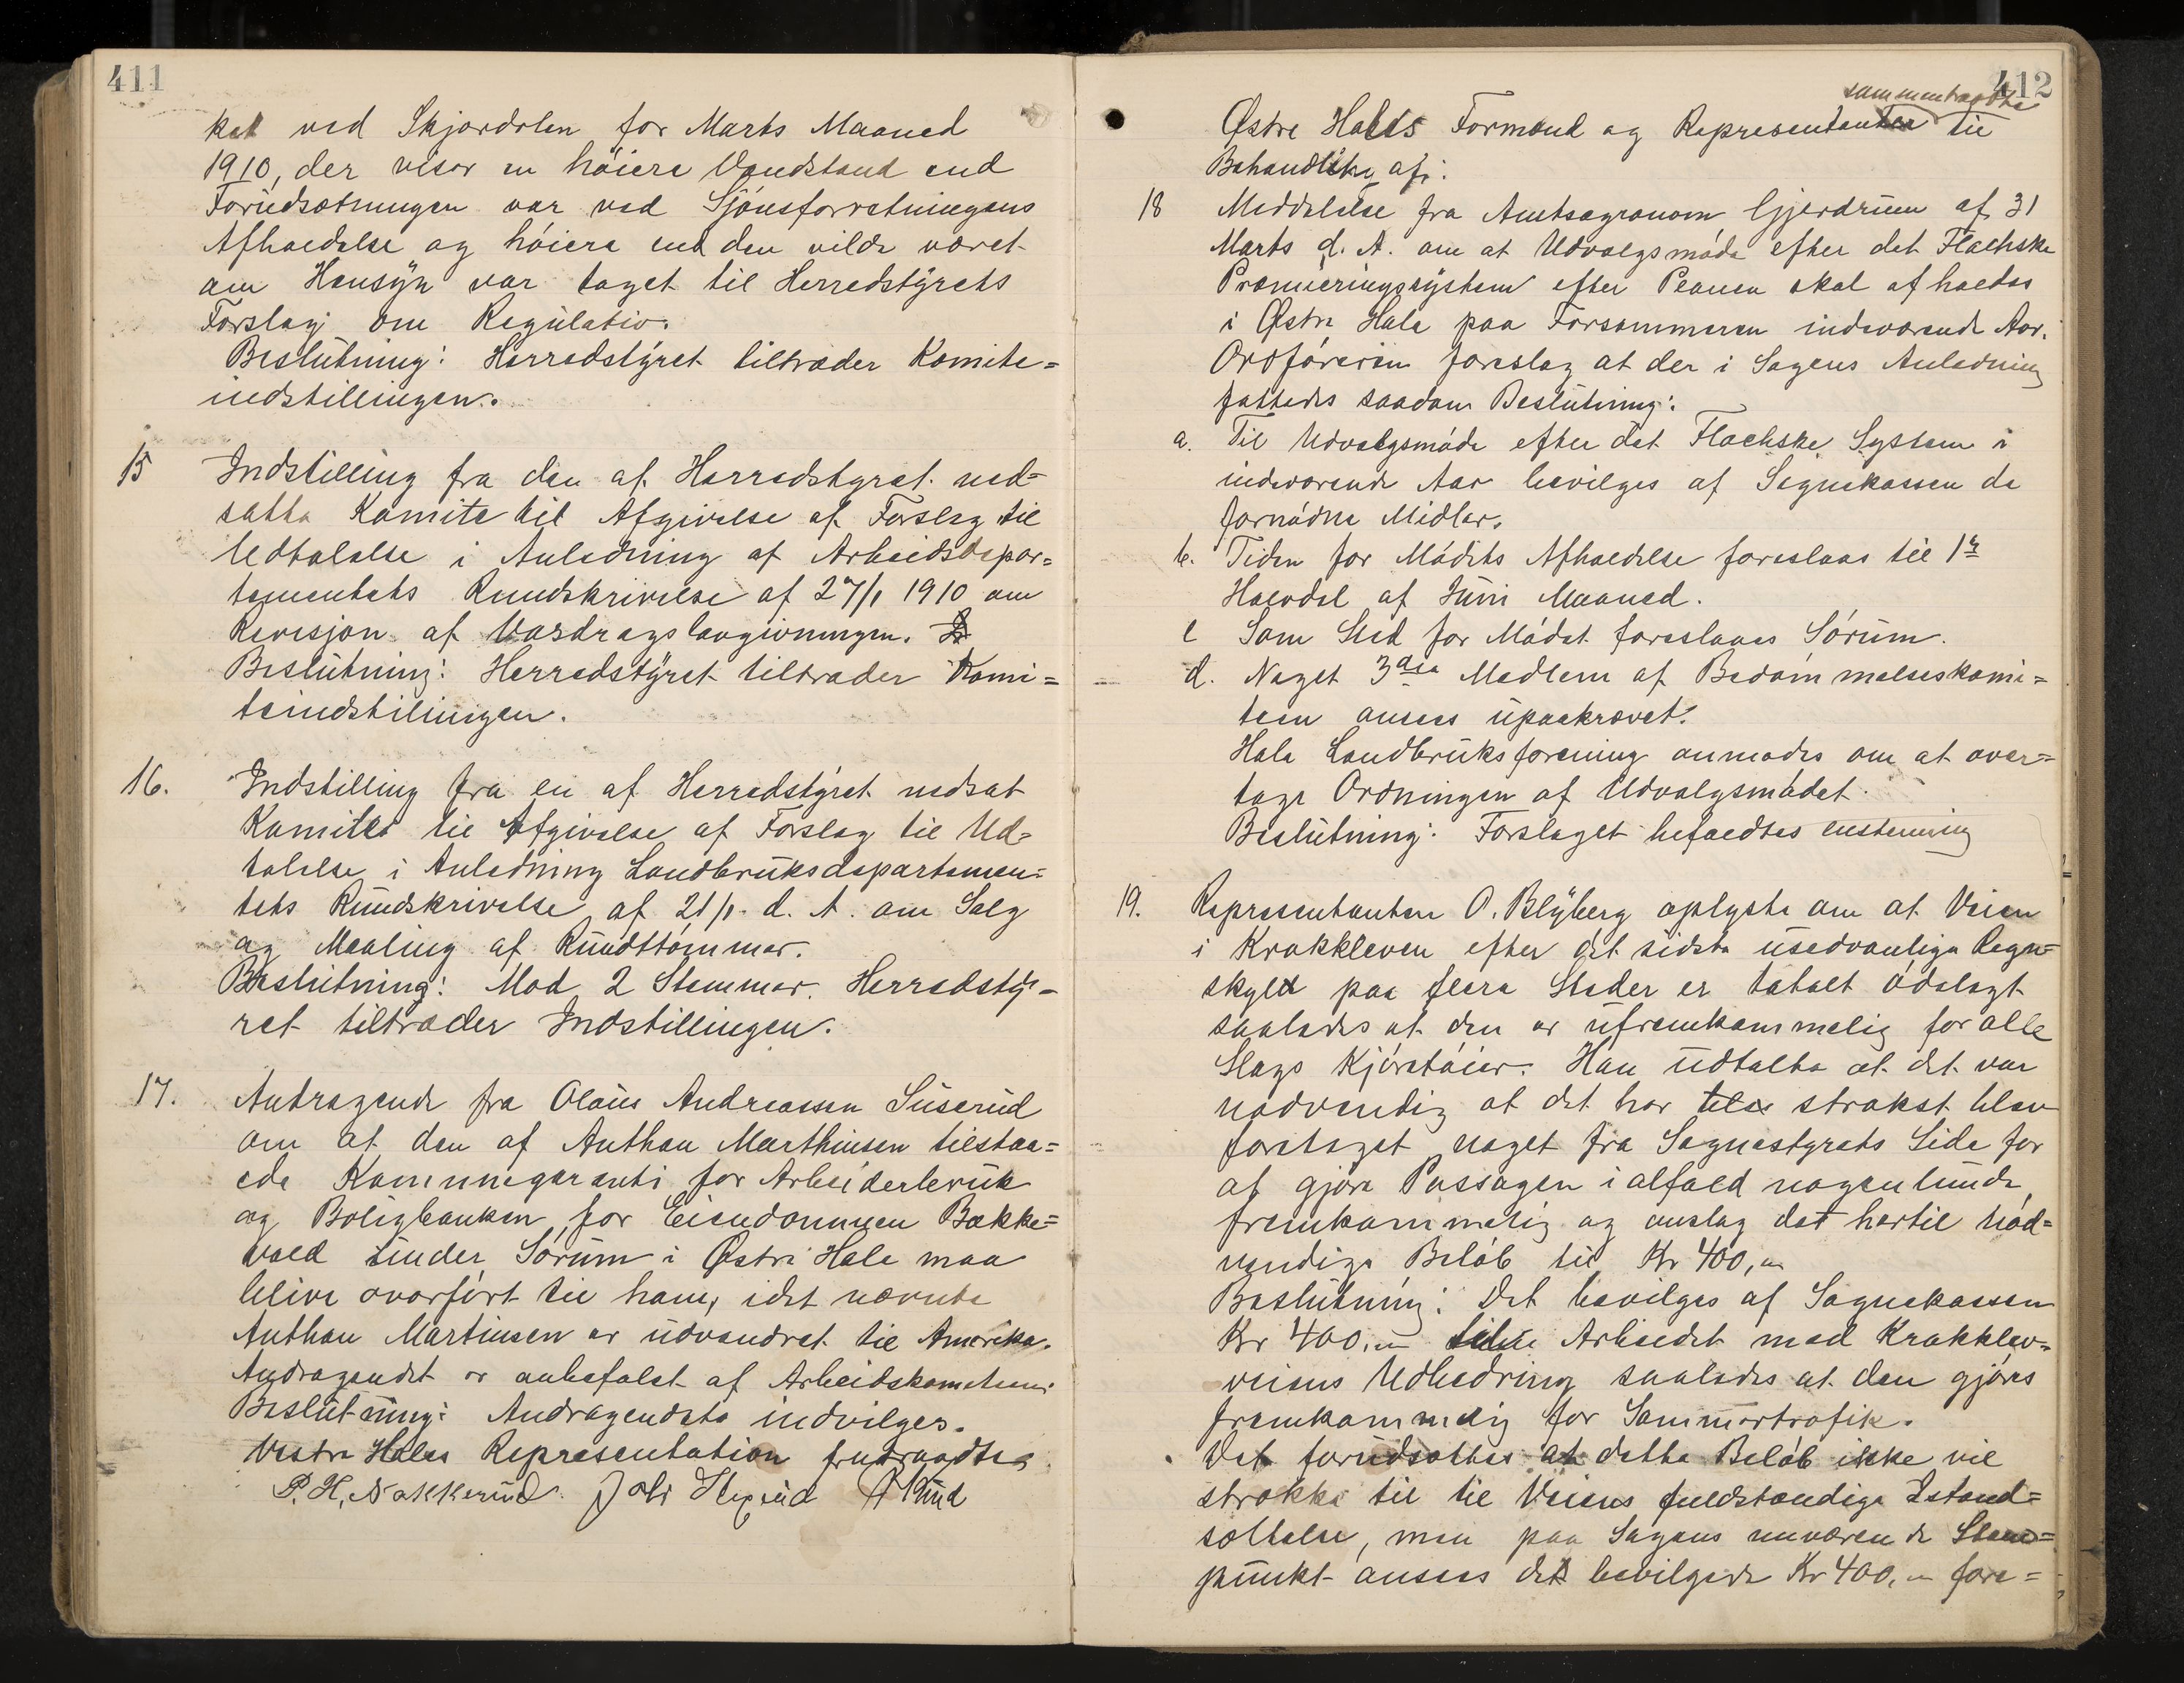 411
ket ved Skjærdalen for Marts Maaned
1910, der viser en høiere Vandstand end
Forudsætningen var ved Skjønsforretningens
Afholdelse og høiere end den vilde været
om Hensyn var taget til Herredstyrets
Forslag om Regulativ.
Beslutning: Herredstyret tiltræder Komite=
indstillingen.
15 Indstilling fra den af Herredstyret ned=
satte Komite til Afgivelse af Forslag til
Udtalelse i Anledning af Arbeidsdepar=
tementets Rundskrivelse af 27/1 1910 om
Revisjon af Vasdragslovgivningen.
Beslutning: Herredstyret tiltræder Komi=
teindstillingen.
16. Indstilling fra en af Herredstyret nedsat
Komite til Afgivelse af Forslag til Ud=
talelse i Anledning Landbruksdepartemen=
tets Rundskrivelse af 21/1 d. A. om Salg
og Maaling af Rundtømmer.
Beslutning: Mod 2 Stemmer. Herredsty=
ret tiltræder Indstillingen.
17. Andragende fra Olaus Andreassen Suserud
om at den af Anthon Marthinsen tilstaa=
ede Kommunegaranti for Arbeiderbruk
og Boligbanken for Eiendommen Bække=
vold under Sørum i Østre Hole maa
blive overført til ham, idet nævnte
Anthon Martinsen er udvandret til Amerika.
Andragendet er anbefalet af Arbeidskomiteen.
Beslutning: Andragendete indvilges.
Vestre Holes Representation fratraadte
P. H. Nakkerud
412
sammentraadte
Østre Holes Formænd og Representanter til
Behandling af:
18 Meddelelse fra Amtsagronom Gjerdrum af 31
Marts d. A. om at Udvalgsmøde efter det Flachske
Præmieringssystem efter Planen skal afholdes
i Østre Hole paa Forsommeren indeværende Aar.
Ordføreren foreslog at der i Sagens Anledning
fattedes saadan Beslutning:
a. Til Udvalgsmøde efter det Flachske System i
indeværende Aar bevilges af Sognekassen de
fornødne Midler.
b. Tiden for Mødets Afholdelse foreslaas til 1ste
Halvdel af Juni Maaned.
c Som Sted for Mødet foreslaaes Sørum.
d. Noget 3die Medlem af Bedømmelseskomi=
teen ansees upaakrævet.
Hole Landbruksforening anmodes om at over=
tage Ordningen af Udvalgsmødet.
Beslutning: Forslaget bifaldtes enstemmig
19. Representanten O. Blyberg oplyste om at Veien
i Krokkleven efter det sidste usedvanlige Regn=
skyld paa flere Steder er totalt ødelagt
saaledes at den er ufremkommelig for alle
Slags Kjøretøier. Han udtalte at det var
nødvendig at det her strakst blev
foretaget noget fra Sognestyrets Side for
at gjøre Passagen ialfald nogenlunde
fremkommelig og anslog det hertil nød=
vendige Beløb til Kr 400,00
Beslutning: Det bevilges af Sognekassen
Kr 400.00 til Arbeidet med Krokklev=
veiens Udbedring saaledes at den gjøres
fremkommelig for Sommertrafik.
Det forudsættes at dette Beløb ikke vil
strække til til Veiens fuldstændige Istand=
sættelse, men paa Sagens nuværende Stand=
punkt ansees det bevilgede Kr 400.00 fore=